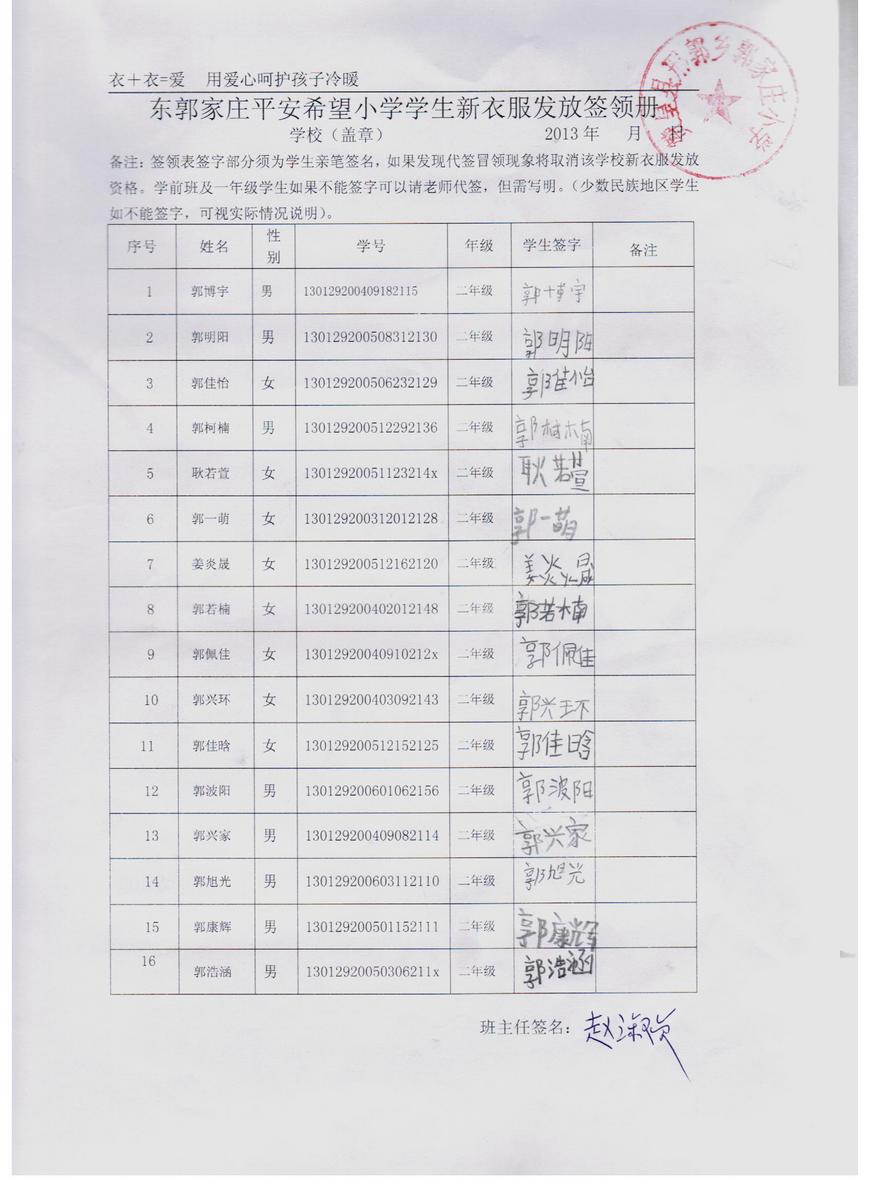 衣＋衣=爱 用爱心呵护孩子冷暖
东郭家庄平安希望小学学生新衣服发放签领册
学校（盖章） 2013年 月 日
赞皇县邢郭乡郭家庄小学
备注：签领表签字部分须为学生亲笔签名，如果发现代签冒领现象将取消该学校新衣服发放
资格。学前班及一年级学生如果不能签字可以请老师代签，但需写明。（少数民族地区学生
如不能签字，可视实际情况说明）。
序号 姓名 性别 学号 年级 学生签字 备注
1 郭博宇 男 130129200409182115 二年级 郭博宇
2 郭明阳 男 130129200508312130 二年级 郭明阳
3 郭佳怡 女 130129200506232129 二年级 郭佳怡
4 郭柯楠 男 130129200512292136 二年级 郭柯楠
5 耿若萱 女 13012920051123214x 二年级 耿若萱
6 郭一萌 女 130129200312012128 二年级 郭一萌
7 姜炎晟 女 130129200512162120 二年级 姜炎晟
8 郭若楠 女 130129200402012148 二年级 郭若楠
9 郭佩佳 女 13012920040910212x 二年级 郭佩佳
10 郭兴环 女 130129200403092143 二年级 郭兴环
11 郭佳晗 女 130129200512152125 二年级 郭佳晗
12 郭波阳 男 130129200601062156 二年级 郭波阳
13 郭兴家 男 130129200409082114 二年级 郭兴家
14 郭旭光 男 130129200603112110 二年级 郭旭光
15 郭康辉 男 130129200501152111 二年级 郭康辉
16 郭浩涵 男 13012920050306211x 二年级 郭浩涵
班主任签名：赵